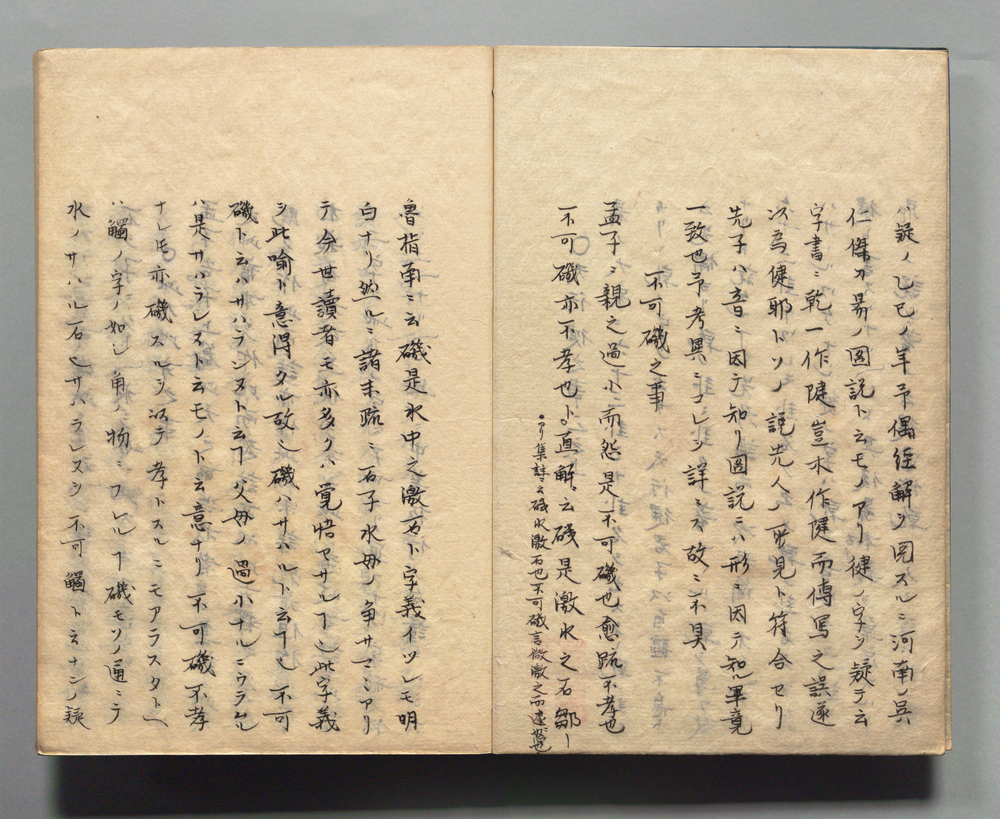 ハ疑ノ乙巳ノ年予偶經解ヲ閲スルニ河南ノ呉
仁傑カ易ノ圖説ト云モノアリ健ノ字ヲ疑テ云
字書ニ乾一作健豈本作健而傳寫之誤遂
以為健耶トソノ説先人ノ所見ト符合セリ
先子ハ音ニ因テ知リ圖説ニハ形ニ因テ知ル畢竟
一致也予考異ニコレヲ詳ニス故ニ不具
不可磯之事
孟子ニ親之過小而怨是不可磯也愈疏不孝也
不可磯亦不孝也ト直解ニ云磯是激水之石鄒ー
集註云磯水激石也不可磯言微激之而遽怒也
魯指南ニ云磯是水中之激石ト字義イツレモ明
白ナリ然ルニ諸末疏ニ石子水母ノ争サマミアリ
テ今世讀者モ亦多クハ覚悟セサルヿ也此字義
ヲ此喻ト意得タル故也磯ハサハルト云ヿ也不可
磯ト云ハサハラシヌト云ヿ父母ノ過小ナルニウラムル
ハ是サハラレスト云モノト云意ナリ不可磯不孝
ナレ𪜈亦磯スルヲ以テ孝トスルニモアラスタトヘ
ハ觸ノ字ノ如シ角ノ物ニフレルヿ磯モソノ通ニテ
水ノサハル石也サハラレヌヲ不可觸ト云ナンノ疑